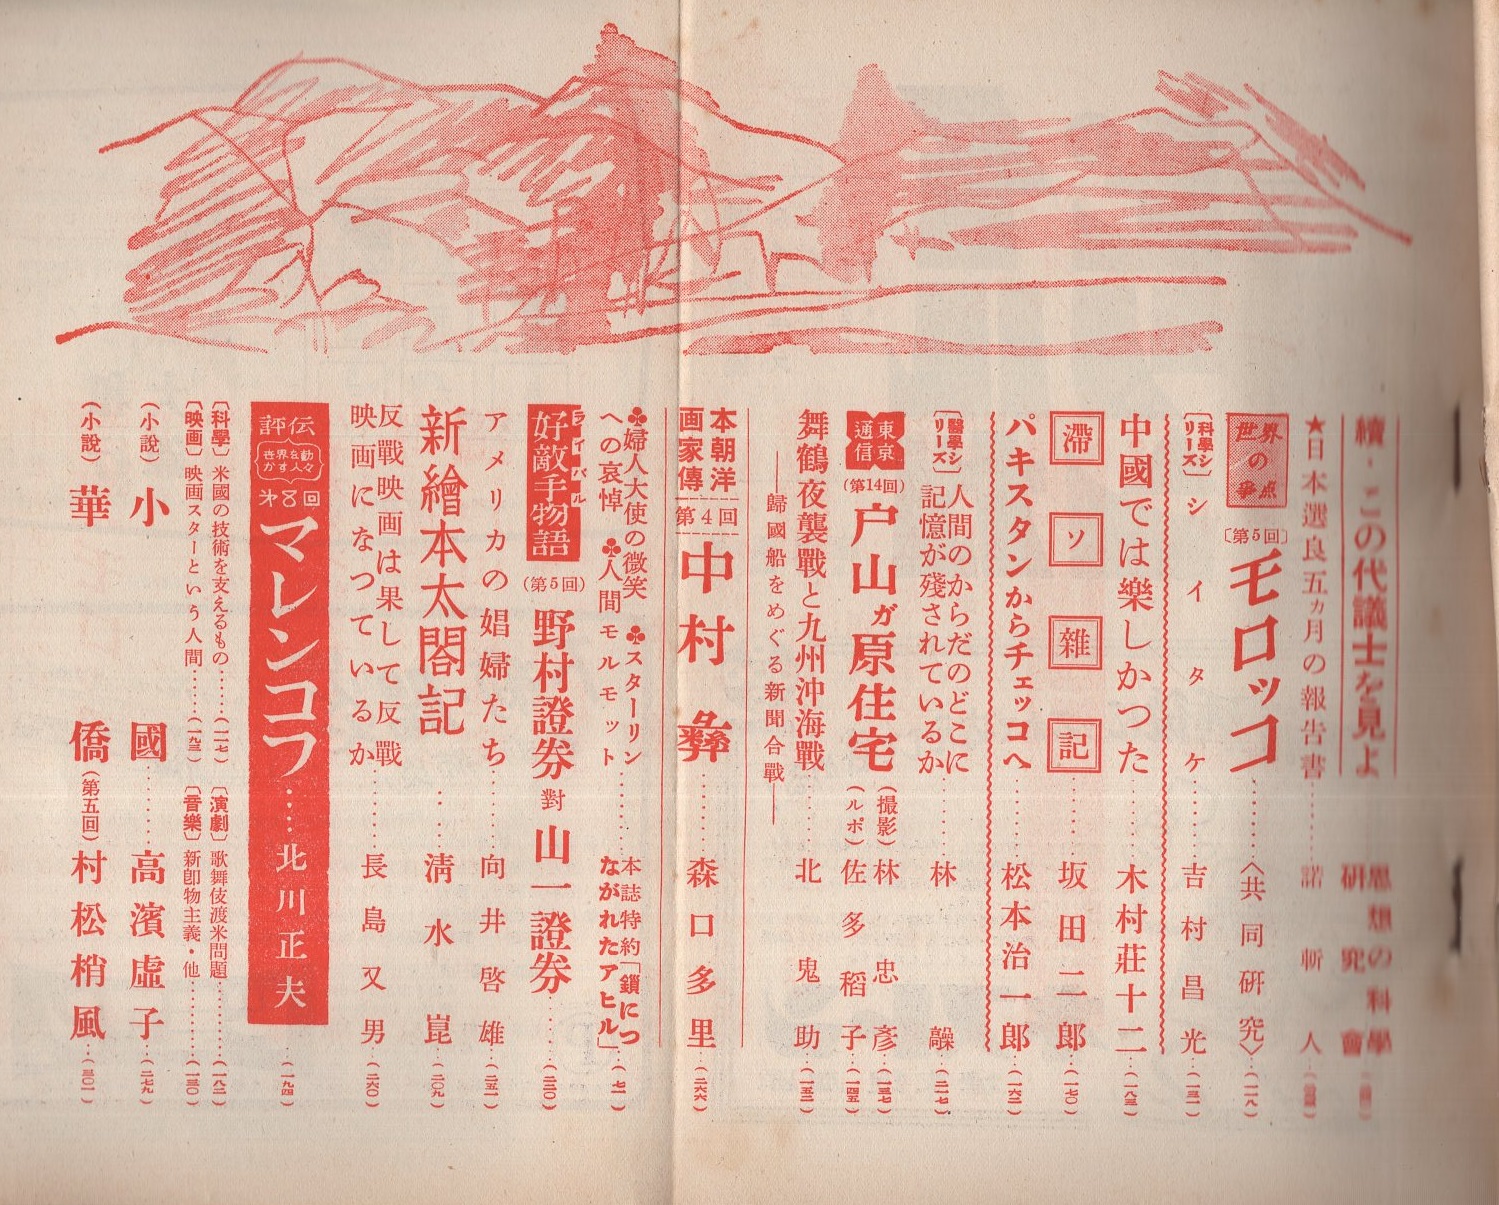 續・この代議士を見よ
思想の科學
研究會
★日本選良五ヵ月の報告書……諾斬人
世界の争点
〔第5回〕
モロッコ……〈共同研究〉…(二一八)
〔科學シリーズ〕
シイタケ……吉村昌光…(一三一)
中國では樂しかつた……木村莊十二…(一八三)
滯ソ雜記……坂田二郎…(一七〇)
パキスタンからチェッコへ……松本治一郎…(一六二)
〔醫學シリーズ〕
人間のからだのどこに
記憶が殘されているか……林髞…(二一七)
東京通信
(第14回)
戸山ガ原住宅
(撮影)林忠彦…(一三七)
(ルポ)佐多稻子…(一四五)
舞鶴夜襲戰と九州沖海戰……北鬼助…(一五二)
―歸國船をめぐる新聞合戰―
本朝洋画家傳
第4回
中村彝……森口多里…(二六六)
♣婦人大使の微笑 ♣スターリン
への哀悼 ♣人間モルモット
本誌特約「鎖につ
ながれたアヒル」…(七一)
好敵手物語
ライバル
(第5回)
野村證券對山一證券……(二二〇)
アメリカの娼婦たち……向井啓雄…(二五一)
新繪本太閤記……淸水崑…(二〇九)
反戰映画は果して反戰
映画になつているか……長島又男…(二六〇)
評伝
世界を動かす人々
オ8回
マレンコフ……北川正夫
…(一九四)
〔科學〕米國の技術を支えるもの……(一一七)
〔演劇〕歌舞伎渡米問題……(一八二)
〔映画〕映画スターという人間……(一九三)
〔音樂〕新卽物主義・他……(一三〇)
(小說)小國……高濱虛子…(二七九)
(小說)華僑(第五回)村松梢風…(三〇一)